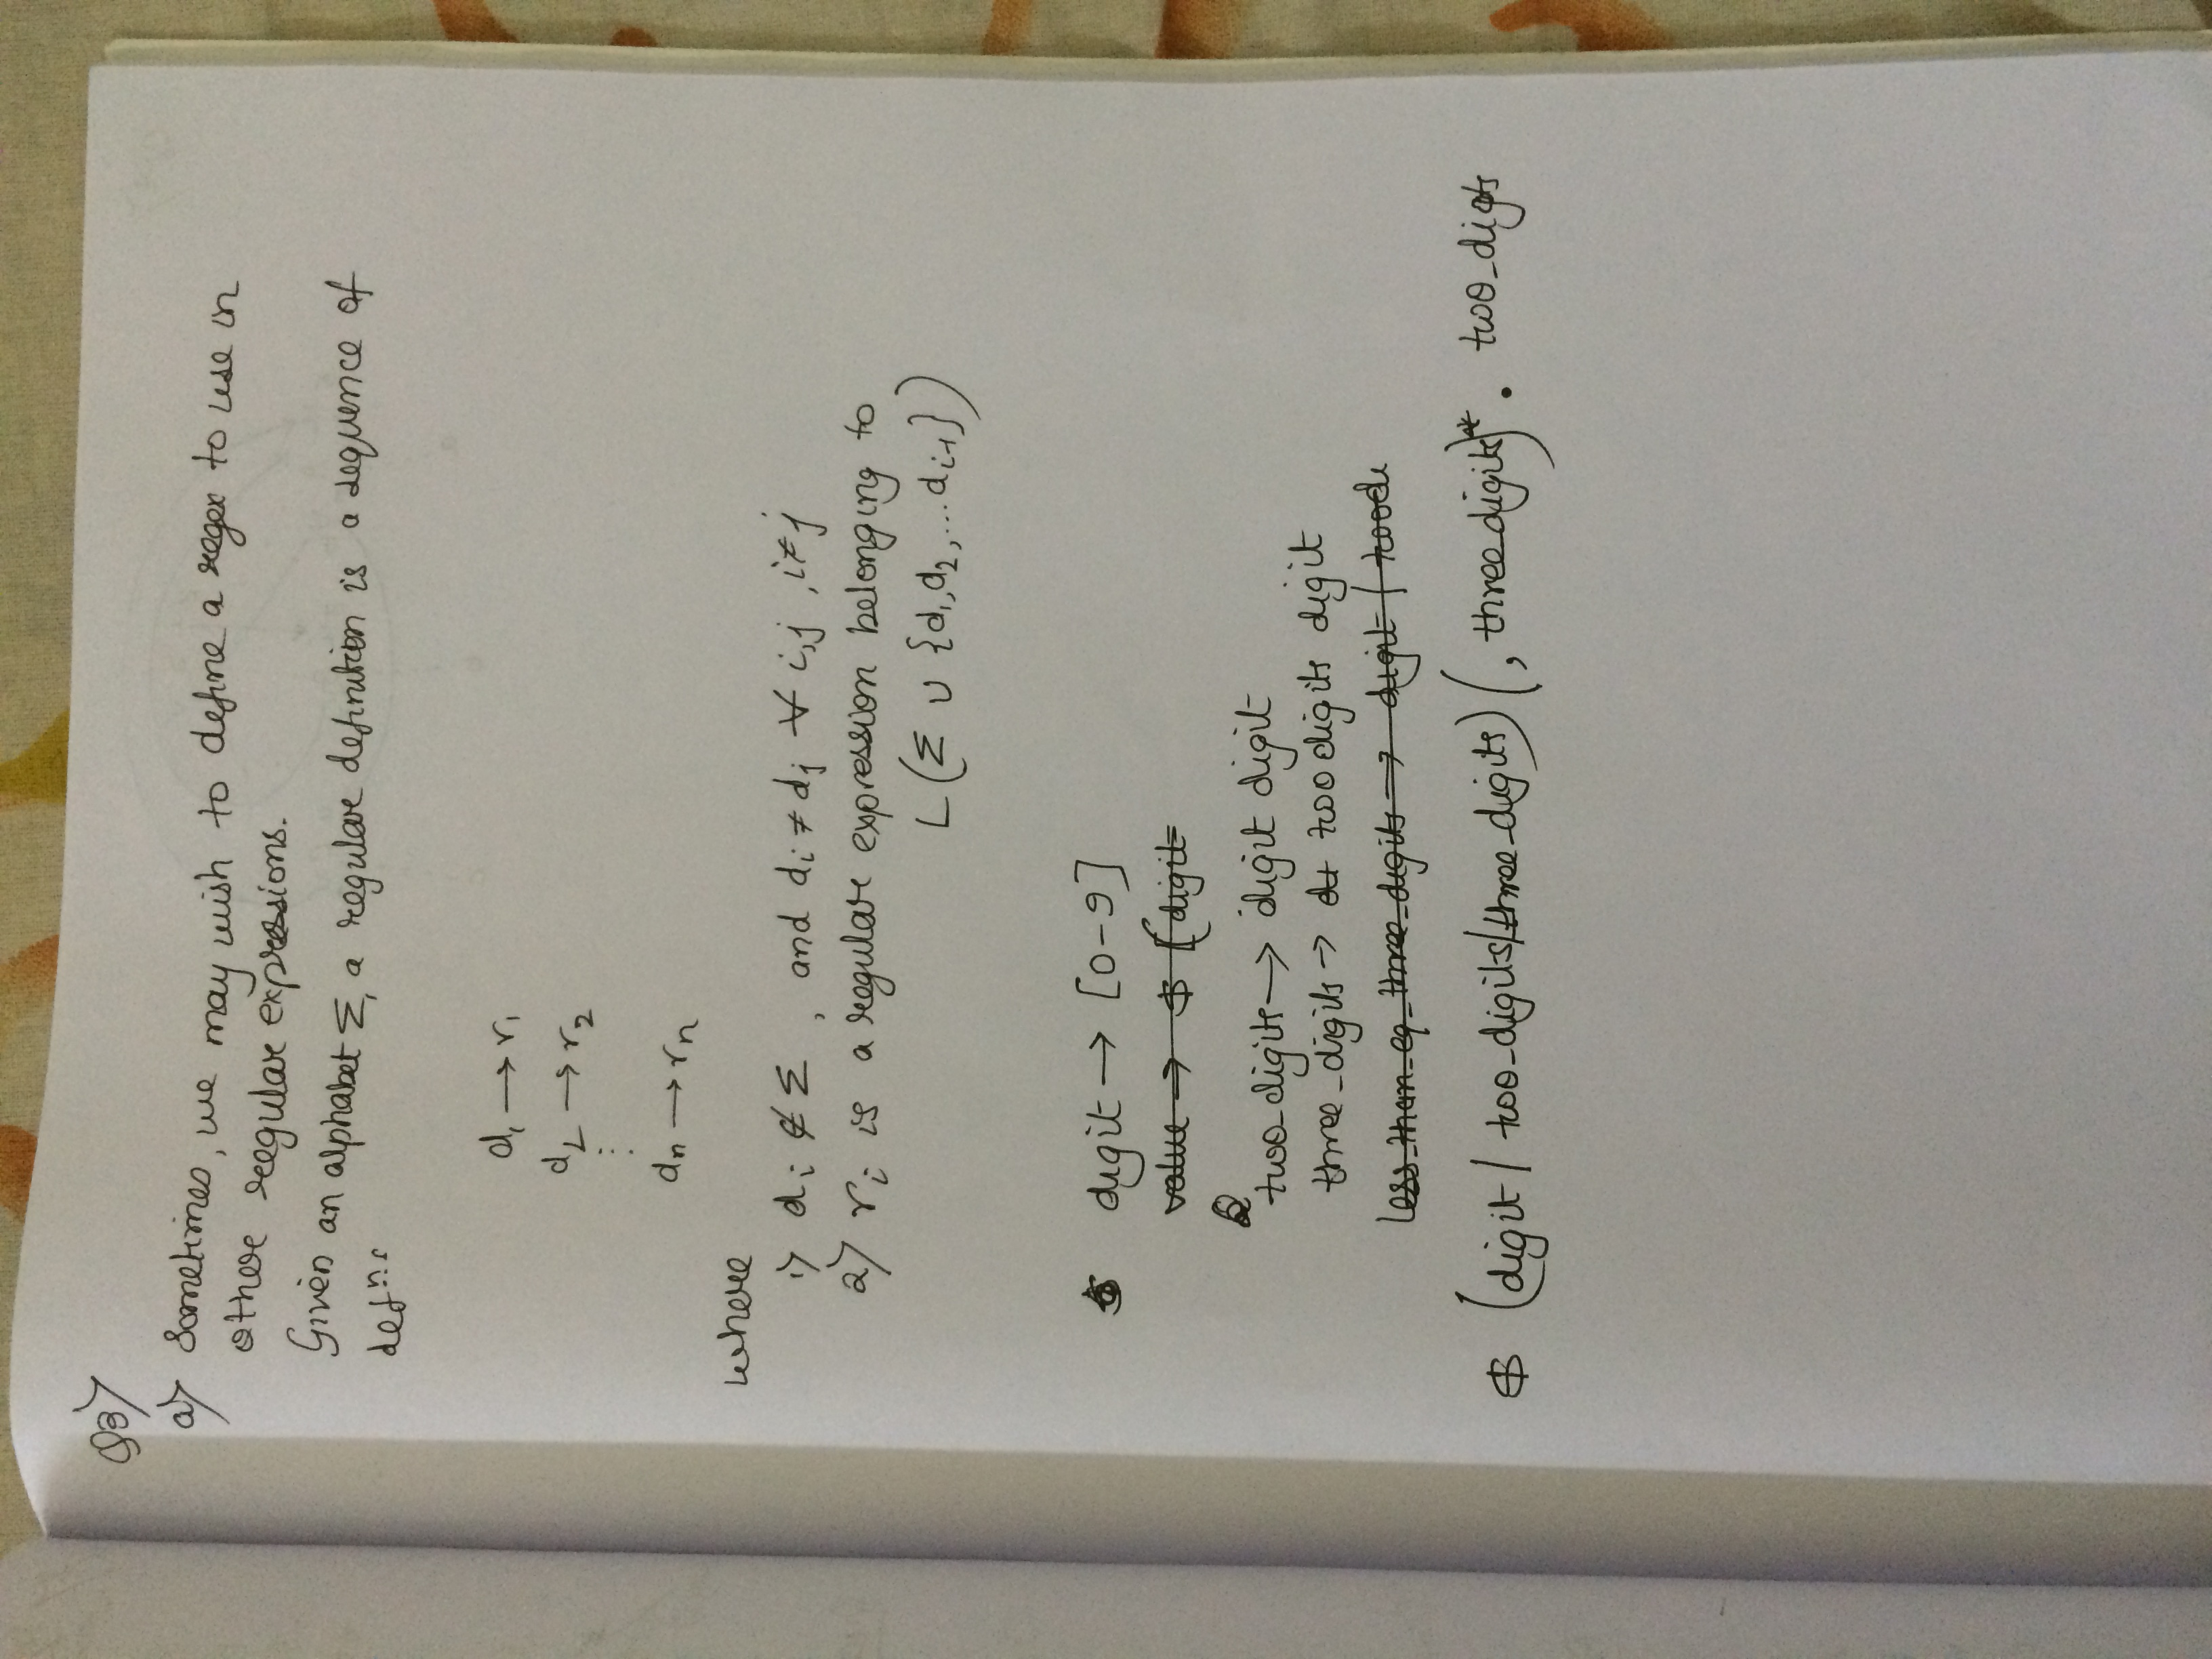 Q3)
a) Sometimes, we may wish to define a regex to use in
other regular expressions.
Given an alphabet Σ, a regular definition is a sequence of
defⁿˢ
d₁ → r₁
d₂ → r₂
⋮
dₙ → rₙ
where
1) dᵢ ∉ Σ , and dᵢ ≠ dⱼ ∀ i,j , i≠j
2) rᵢ is a regular expression belonging to
L(Σ ∪ {d₁,d₂,...dᵢ₋₁})
digit → [0-9]
value → $ [digit
two_digits → digit digit
three_digits → two digits digit
less_than_eq_three_digits → digit |
$ (digit / two_digits/three_digits) (, three_digits)* . two_digits